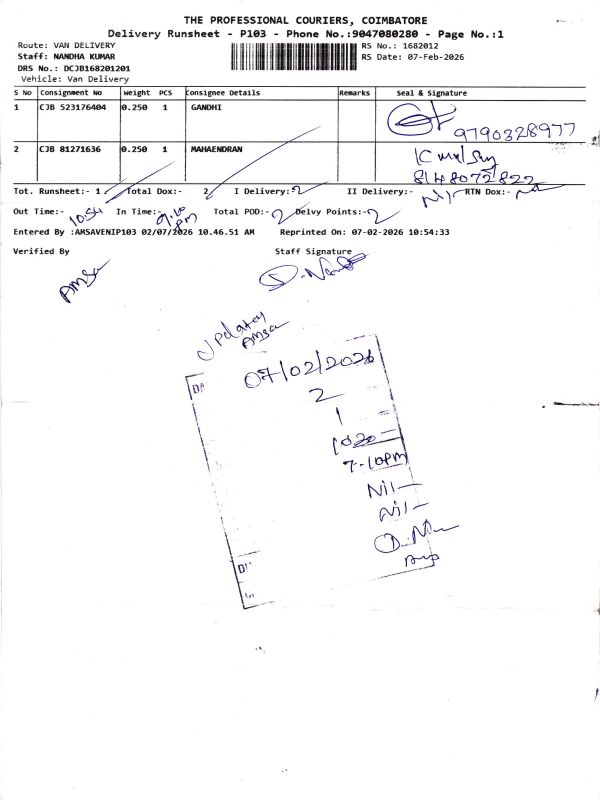 THE PROFESSIONAL COURIERS, COIMBATORE
Delivery Runsheet - P103 - Phone No.:9047080280 - Page No.:1
Route: VAN DELIVERY RS No.: 1682012
Staff: NANDHA KUMAR RS Date: 07-Feb-2026
DRS No.: DCJB168201201
Vehicle: Van Delivery
S No Consignment No Weight PCS Consignee Details Remarks Seal & Signature
1 CJB 523176404 0.250 1 GANDHI
9790328977
2 CJB 81271636 0.250 1 MAHAENDRAN
8148072822
Tot. Runsheet:- 1 Total Dox:- 2 I Delivery:- 2 II Delivery:- Nil RTN Dox:-
Out Time:- 10:54 In Time:- Total POD:- 2 Delvy Points:- 2
Entered By :AMSAVENIP103 02/07/2026 10.46.51 AM Reprinted On: 07-02-2026 10:54:33
Verified By Staff Signature
Amsa
Amsa
07/02/2026
2
1
7-10pm
Nil
Nil